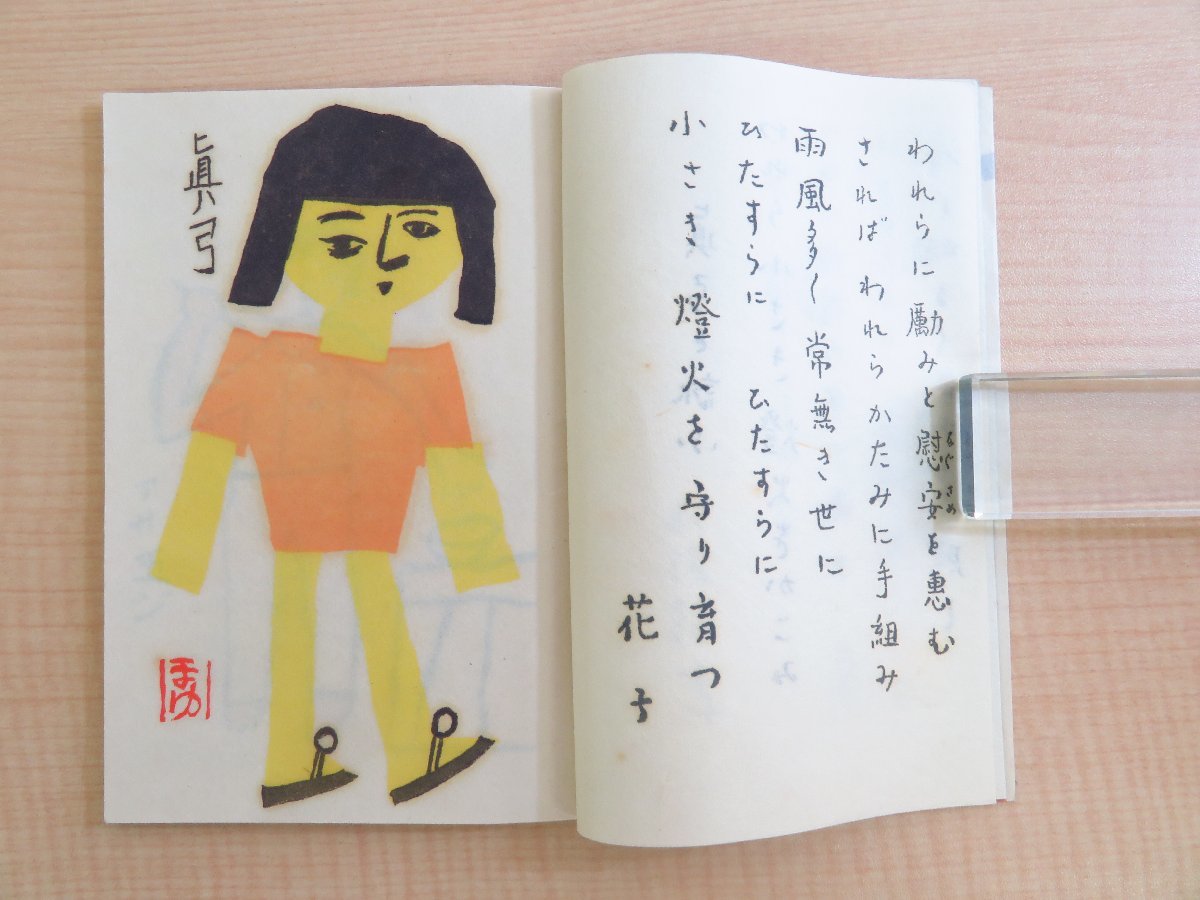 われらに励みと慰安を恵む
なぐさめ
されば われらかたみに手組み
雨風多く 常無き世に
ひたすらに ひたすらに
小さき 燈火を 守り育つ
花子
眞弓